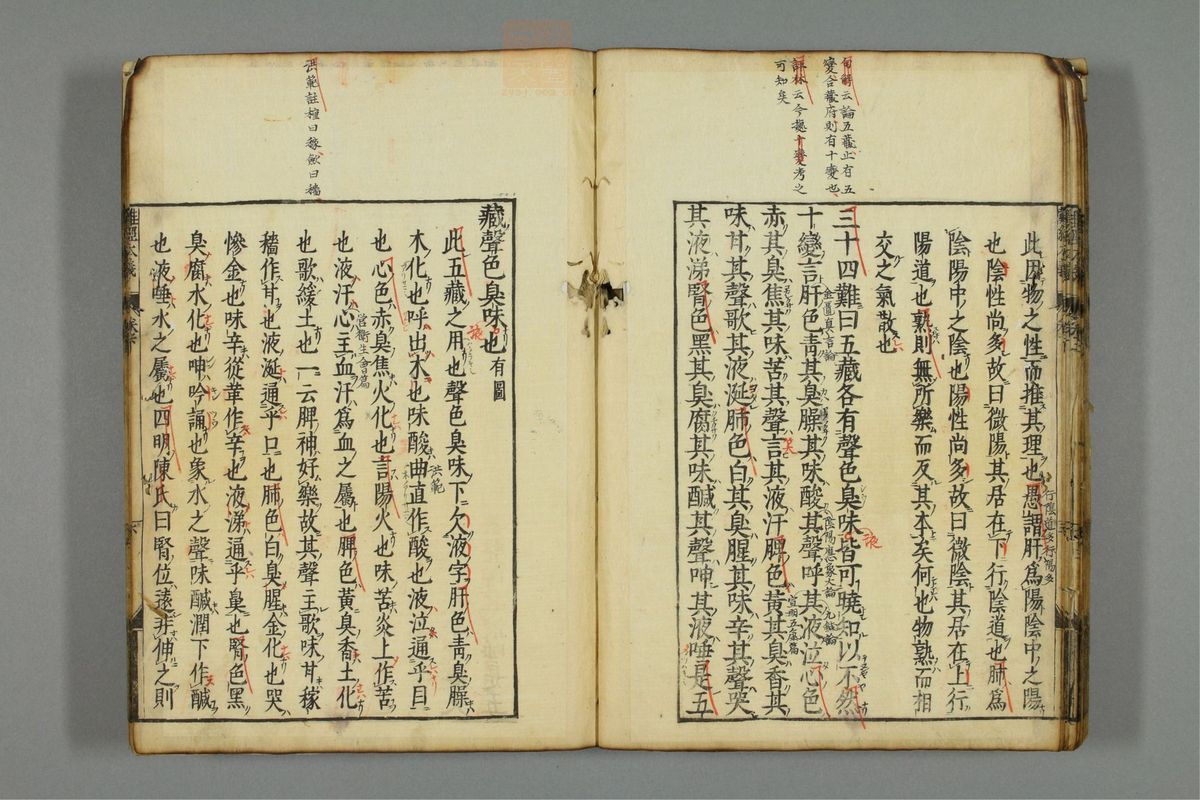 此因物之性而推其理也愚謂肝爲陽陰中之陽
也陰性尚多故曰微陽其居在下行陰道也肺爲
陰陽中之陰也陽性尚多故曰微陰其居在上行
陽道也熟則無所樂而反其本矣何也物熟而相
交之氣散也
三十四難曰五藏各有聲色臭味皆可曉知以不然
十變言肝色靑其臭臊其味酸其聲呼其液泣心色
赤其臭焦其味苦其聲言其液汗脾色黃其臭香其
味甘其聲歌其液涎肺色白其臭腥其味辛其聲哭
其液涕腎色黑其臭腐其味鹹其聲呻其液唾是五
句解云論五藏止有五
變合藏府則有十變也
評林云今攄十變考之
可知矣
藏聲色臭味也有圖
此五藏之用也聲色臭味下欠液字肝色靑臭臊
木化也呼出木也味酸曲直作酸也液泣通乎目
也心色赤臭焦火化也言陽火也味苦炎上作苦
也液汗心主血汗爲血之屬也脾色黃臭香土化
也歌緩土也一云脾神好樂故其聲主歌味甘稼
穡作甘也液涎通乎口也肺色白臭腥金化也哭
慘金也味辛從革作辛也液涕通乎鼻也腎色黑
臭腐水化也呻吟誦也象水之聲味鹹潤下作鹹
也液唾水之屬也四明陳氏曰腎位遠非伸之則
洪範註種曰稼歛曰穡